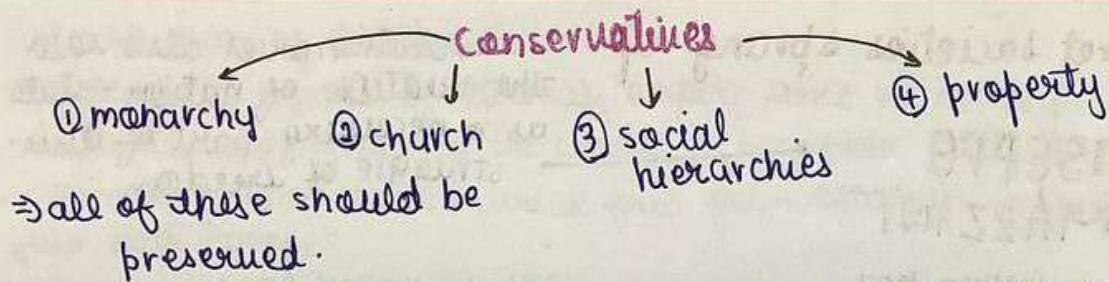 Conservatives
① monarchy
② church
③ social
hierarchies
④ property
⇒ all of these should be
preserved.